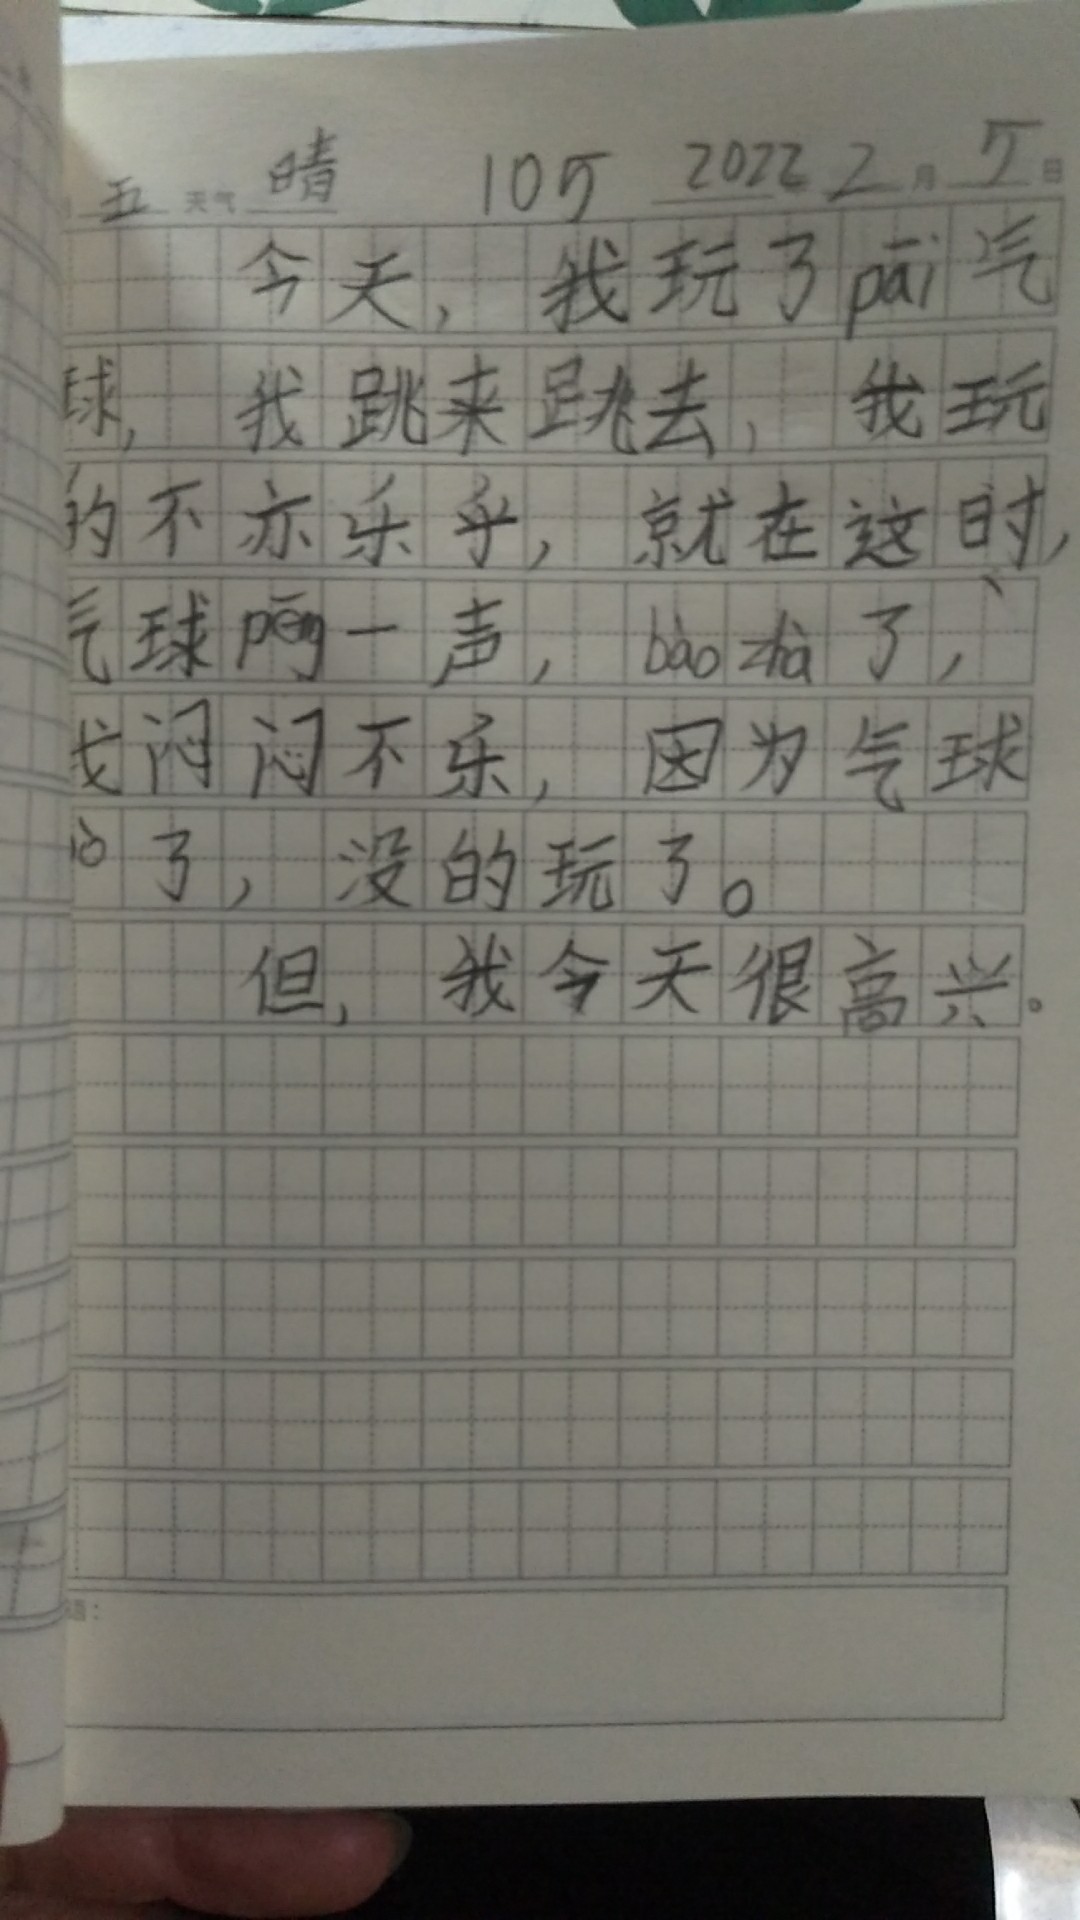 五 天气 晴 105 2022 2 月 5 日
今天，我玩了pāi气
球，我跳来跳去，我玩
的不亦乐乎，就在这时，
气球pēng一声，bào zhà了，
我闷闷不乐，因为气球
了，没的玩了。
但，我今天很高兴。